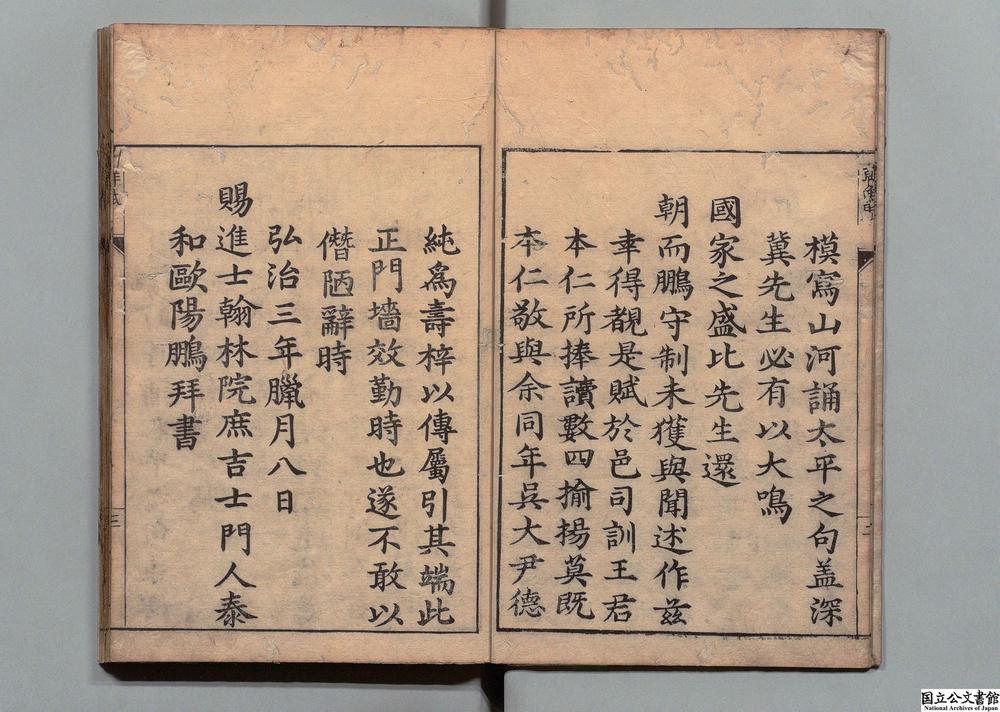 模寫山河誦太平之句盖深
冀先生必有以大鳴
國家之盛比先生還
朝而鵬守制未獲與聞述作茲
幸得覩是賦於邑司訓王君
本仁所捧讀數四揄揚莫既
本仁敬與余同年吳大尹德
純爲壽梓以傳屬引其端此
正門墻效勤時也遂不敢以
僭陋辭時
弘治三年臘月八日
賜進士翰林院庶吉士門人泰
和歐陽鵬拜書
三
国立公文書館
National Archives of Japan